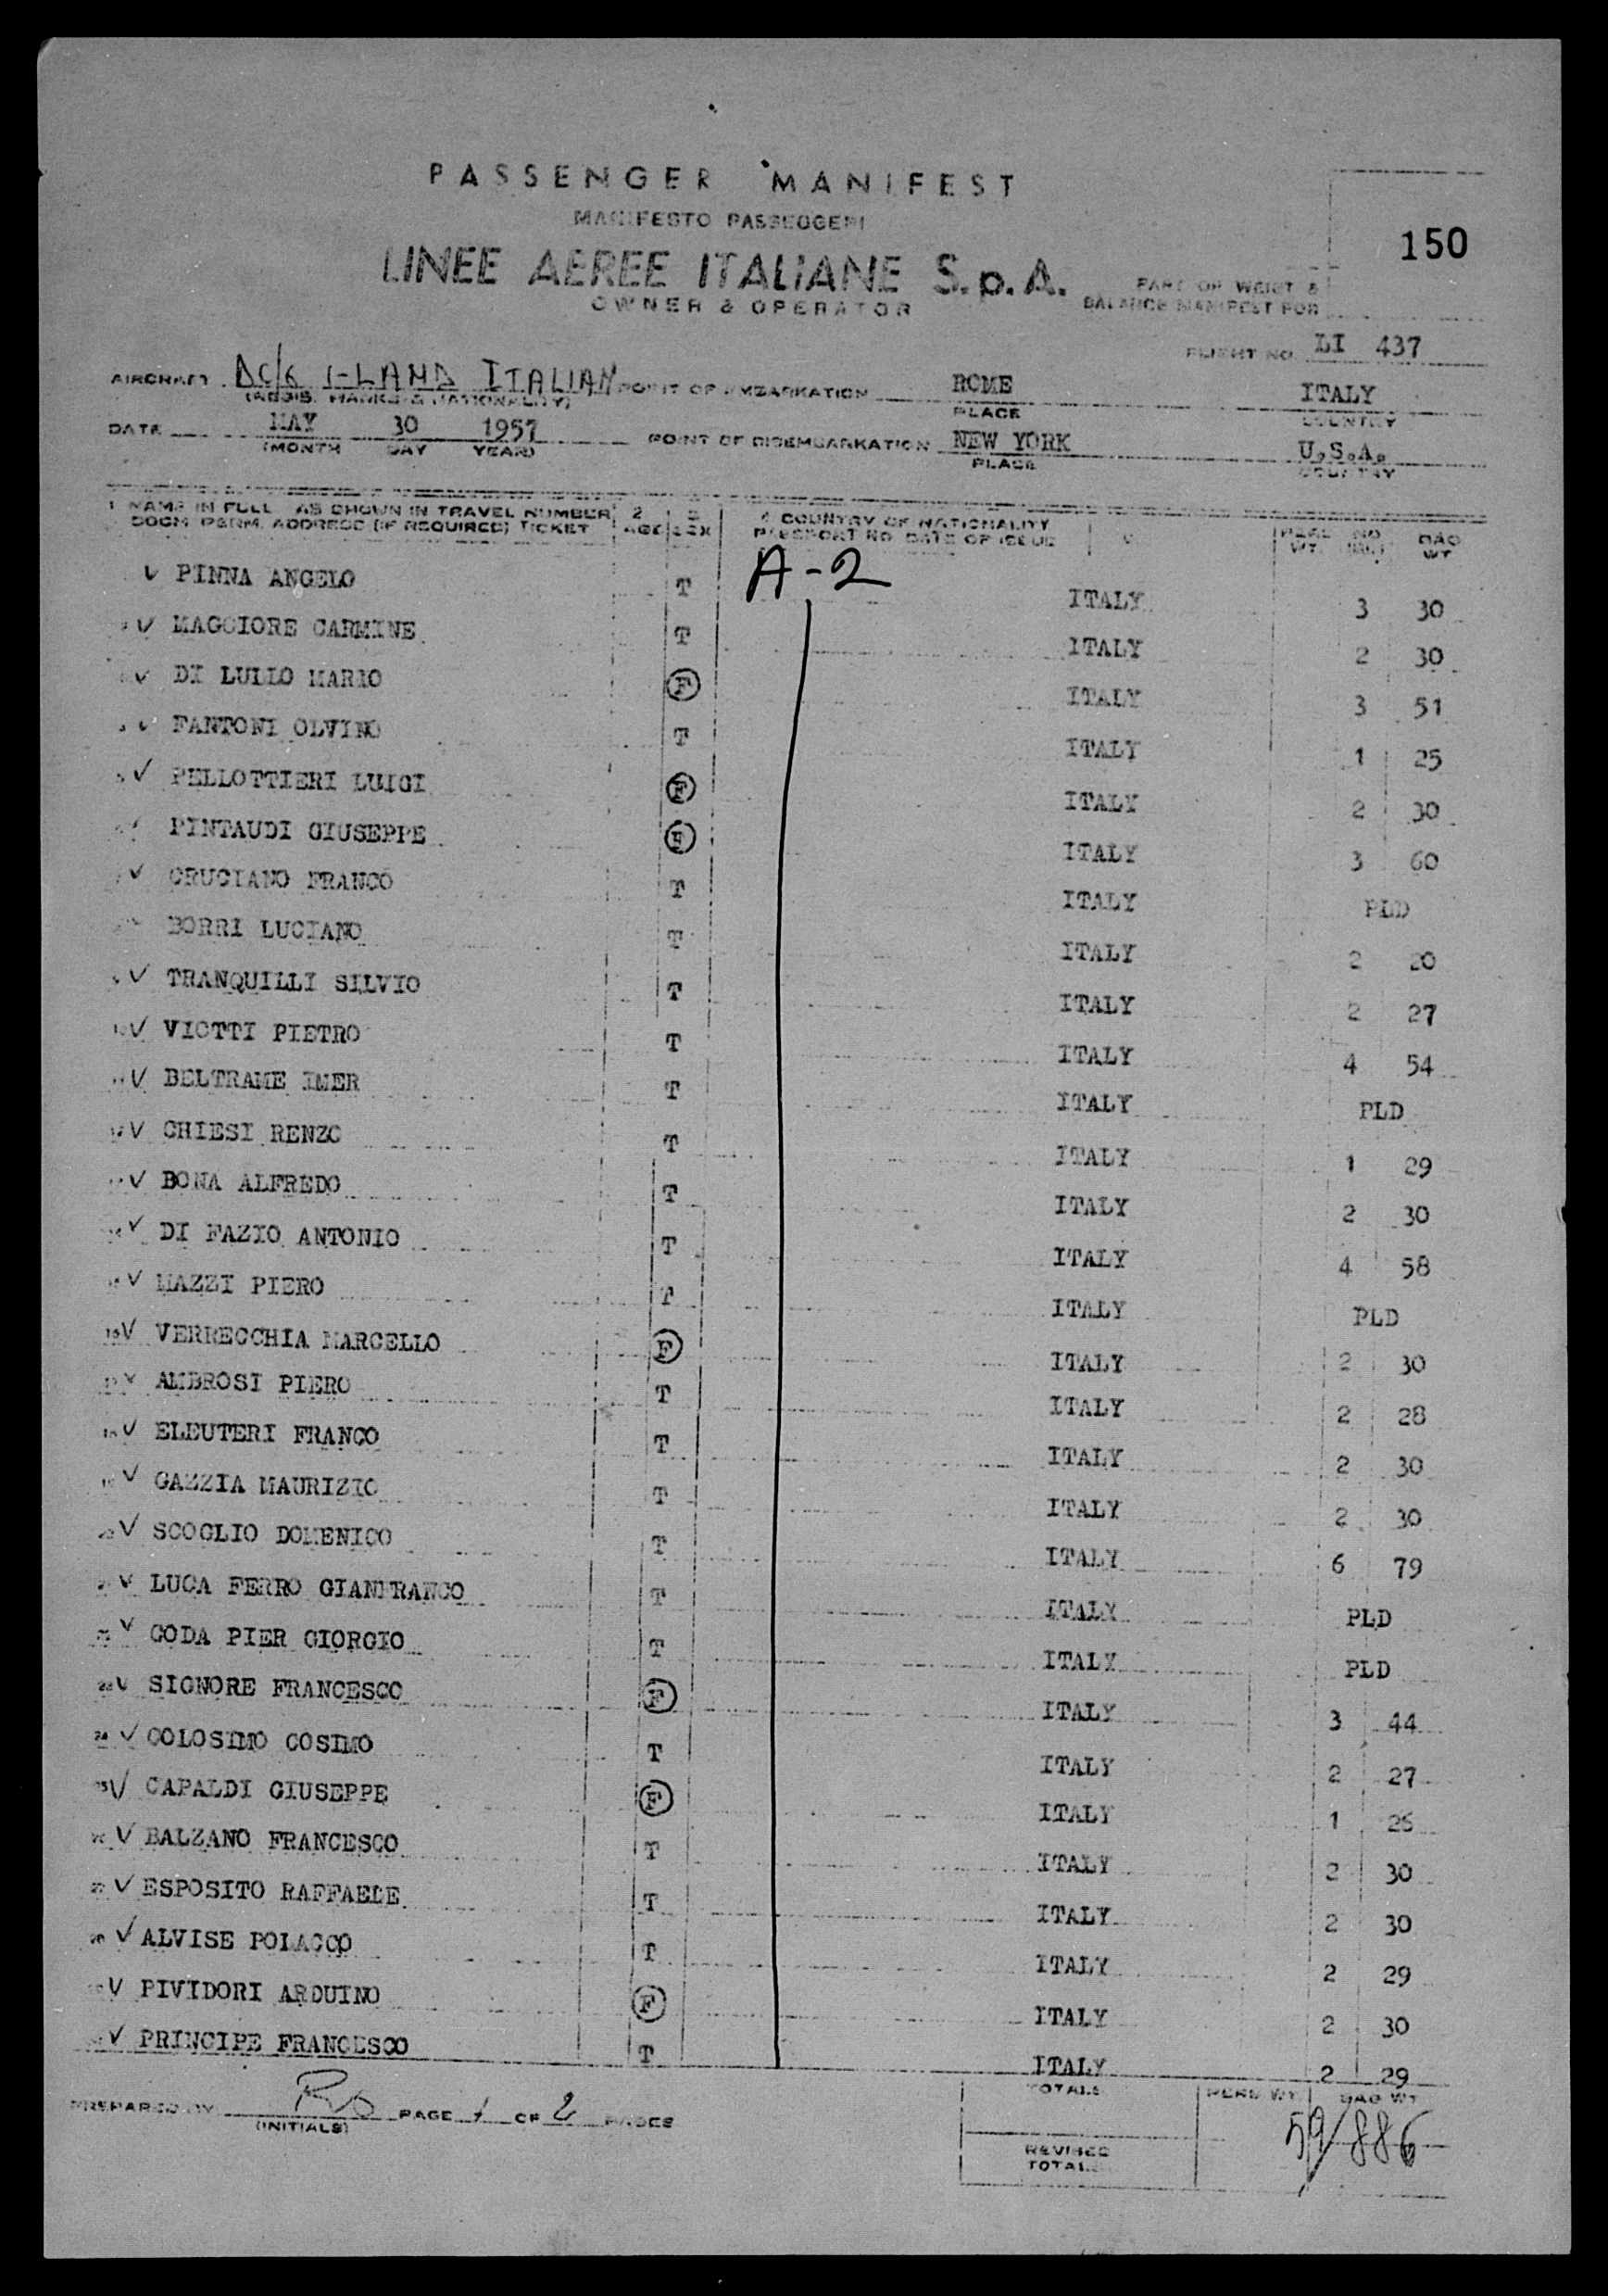 PASSENGER MANIFEST
MANIFESTO PASSEGGERI
LINEE AEREE ITALIANE S.p.A.
OWNER & OPERATOR
150
PART OF WEIGT &
BALANCE MANIFEST FOR
FLIGHT NO. LI 437
AIRCRAFT DC/6 I-LAND ITALIAN POINT OF EMBARKATION ROME ITALY
(REGIS. MARKS & NATIONALITY) PLACE COUNTRY
DATE MAY 30 1957 POINT OF DISEMBARKATION NEW YORK U.S.A.
(MONTH DAY YEAR) PLACE COUNTRY
1 NAME IN FULL AS SHOWN IN TRAVEL NUMBER 2 3 4 COUNTRY OF NATIONALITY
DOCM. PERM. ADDRESS (IF REQUIRED) TICKET AGE SEX PASSPORT NO. DATE OF ISSUE WT. BAG WT
A-2
PINNA ANGELO T ITALY 3 30
MAGGIORE CARMINE T ITALY 2 30
DI LULLO MARIO F ITALY 3 51
FANTONI OLVINO T ITALY 1 25
5 PELLOTTIERI LUIGI F ITALY 2 30
PINTAUDI GIUSEPPE F ITALY 3 60
7 CRUCIANO FRANCO T ITALY PLD
BORRI LUCIANO T ITALY 2 20
9 TRANQUILLI SILVIO T ITALY 2 27
10 VIOTTI PIETRO T ITALY 4 54
11 BELTRAME IMER T ITALY PLD
12 CHIESI RENZO T ITALY 1 29
13 BONA ALFREDO T ITALY 2 30
14 DI FAZIO ANTONIO T ITALY 4 58
15 MAZZI PIERO T ITALY PLD
16 VERRECCHIA MARCELLO F ITALY 2 30
17 AMBROSI PIERO T ITALY 2 28
18 ELEUTERI FRANCO T ITALY 2 30
19 GAZZIA MAURIZIO T ITALY 2 30
20 SCOGLIO DOMENICO T ITALY 6 79
21 LUCA FERRO GIANFRANCO T ITALY PLD
22 CODA PIER GIORGIO T ITALY PLD
23 SIGNORE FRANCESCO F ITALY 3 44
24 COLOSIMO COSIMO T ITALY 2 27
25 CAPALDI GIUSEPPE F ITALY 1 26
26 BALZANO FRANCESCO T ITALY 2 30
27 ESPOSITO RAFFAELE T ITALY 2 30
28 ALVISE POLACCO T ITALY 2 29
PIVIDORI ARDUINO F ITALY 2 30
PRINCIPE FRANCESCO T ITALY 2 29
PREPARED BY PAGE 1 OF 2 PAGES
(INITIALS)
TOTALS PERS WT BAG WT
59/886
REVISED
TOTALS